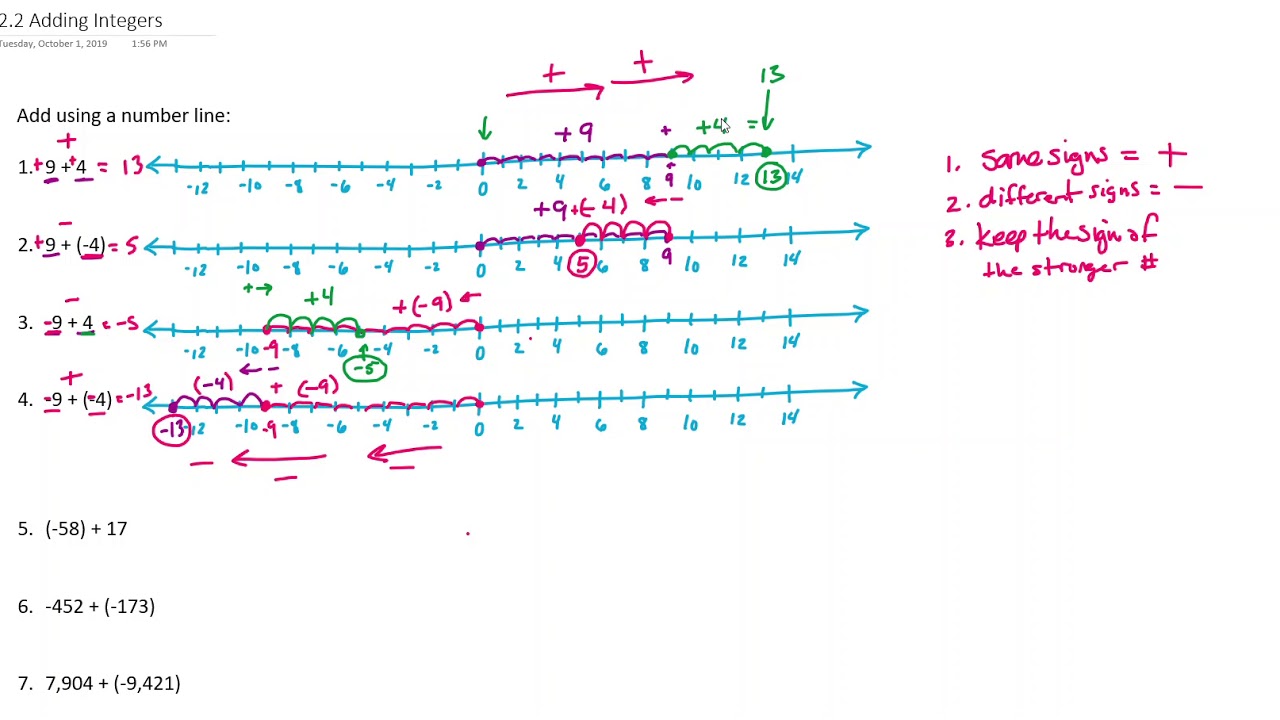 2.2 Adding Integers
Tuesday, October 1, 2019 1:56 PM
+ +
13
Add using a number line:
+ +9 + +4 =
1. +9 + +4 = 13
-12 -10 -8 -6 -4 -2 0 2 4 6 8 9 10 12 13 14
+9 + (-4) ← -
-
2. +9 + (-4) = 5
-12 -10 -8 -6 -4 -2 0 2 4 5 6 8 9 10 12 14
+ → +4 + (-9) ←
-
3. -9 + 4 = -5
-12 -10 -9 -8 -6 -4 -2 0 2 4 6 8 10 12 14
-5
+ (-4) ← - + (-9)
4. -9 + (-4) = -13
-13 -12 -10 -9 -8 -6 -4 -2 0 2 4 6 8 10 12 14
- - -
1. Same signs = +
2. different signs = -
3. keep the sign of
the stronger #
5. (-58) + 17
6. -452 + (-173)
7. 7,904 + (-9,421)